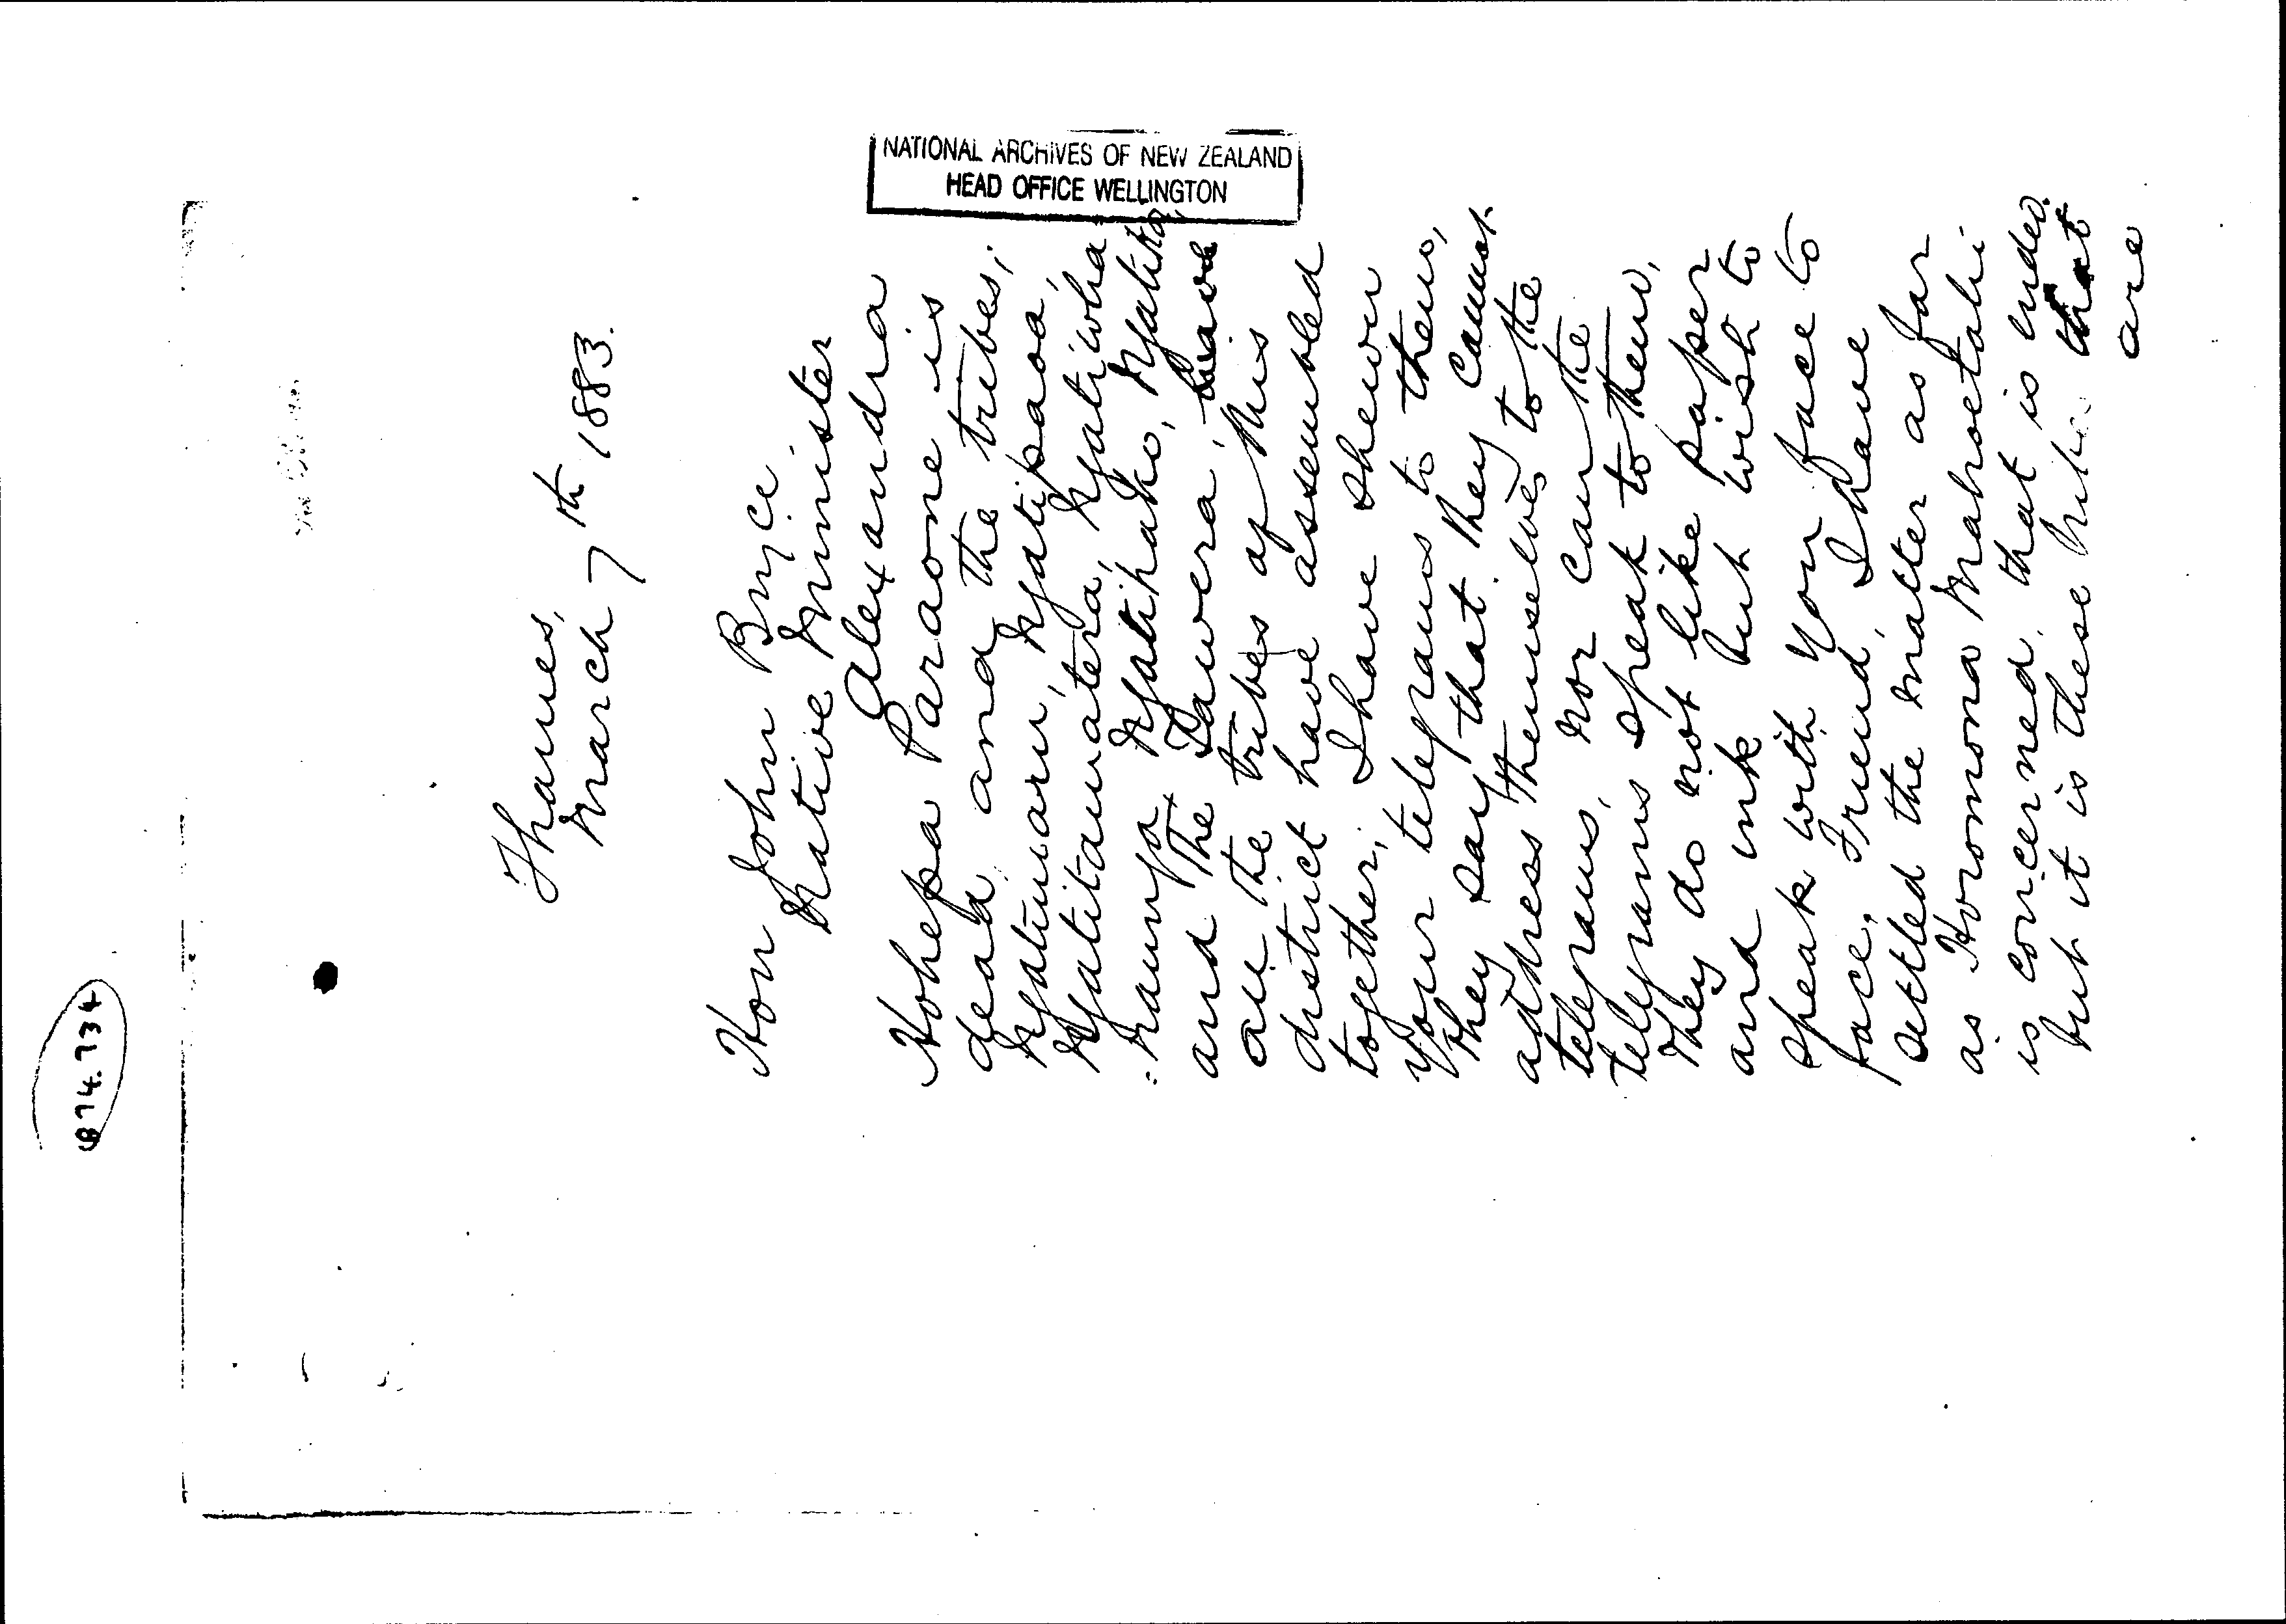 874.734
NATIONAL ARCHIVES OF NEW ZEALAND
HEAD OFFICE WELLINGTON
Thames,
March 7th 1883.
Hon John Bryce
Native Minister
Alexandra
Hohepa Paraone is
dead and the tribes,
Ngatimaru, Ngatipaoa,
Ngatitamatera, Ngatiwha
:naunga Ngatihako, Ngatiko
and the Tawera, have
all the tribes of this
district have assembled
together. I have shewn
your telegrams to them,
they say that they cannot
address themselves to the
telegrams, nor can the
telegrams speak to them,
they do not like paper
and ink but wish to
speak with you face to
face. Friend, I have
settled the matter as far
as Horomona Mahoetahi
is concerned, that is ended.
but it is these that
are